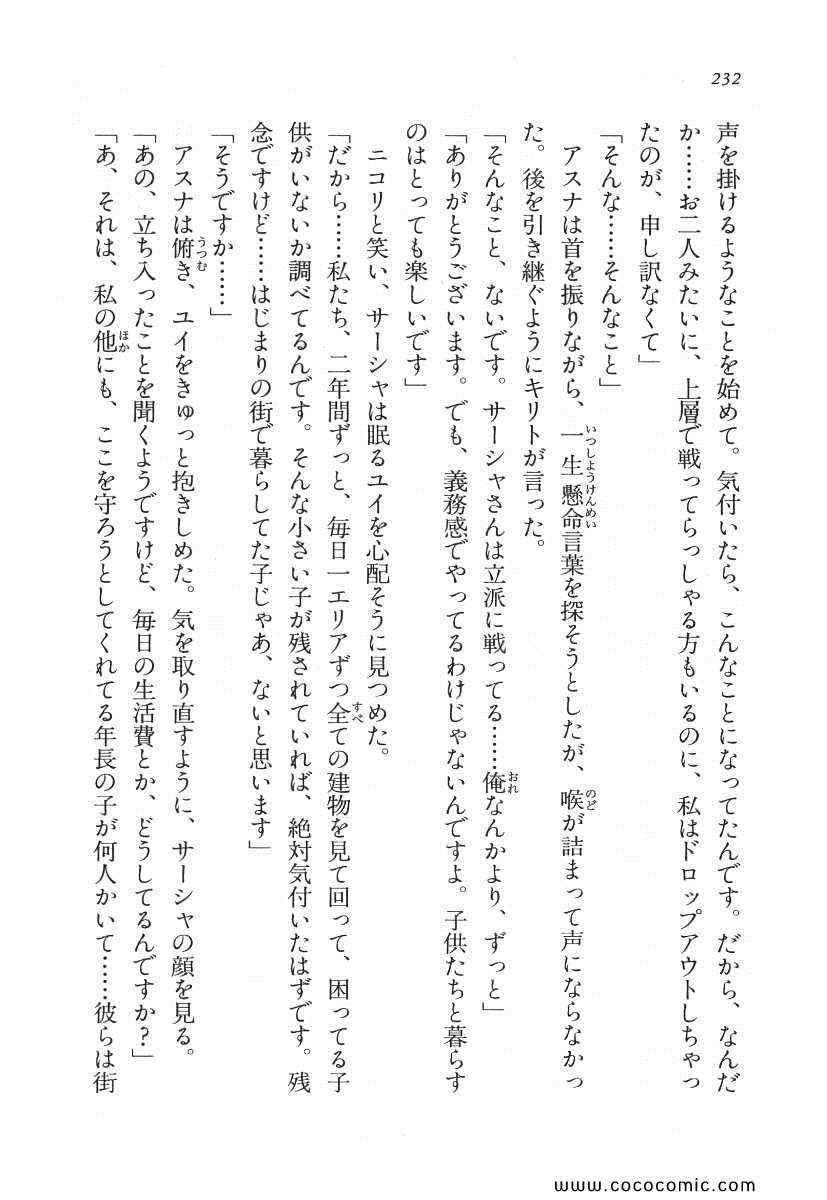 232
声を掛けるようなことを始めて。気付いたら、こんなことになってたんです。だから、なんだ
か……お二人みたいに、上層で戦ってらっしゃる方もいるのに、私はドロップアウトしちゃっ
たのが、申し訳なくて」
「そんな……そんなこと」
アスナは首を振りながら、一生懸命言葉を探そうとしたが、喉が詰まって声にならなかっ
いつしようけんめい
のど
た。後を引き継ぐようにキリトが言った。
「そんなこと、ないです。サーシャさんは立派に戦ってる……俺なんかより、ずっと」
おれ
「ありがとうございます。でも、義務感でやってるわけじゃないんですよ。子供たちと暮らす
のはとっても楽しいです」
ニコリと笑い、サーシャは眠るユイを心配そうに見つめた。
「だから……私たち、二年間ずっと、毎日一エリアずつ全ての建物を見て回って、困ってる子
すべ
供がいないか調べてるんです。そんな小さい子が残されていれば、絶対気付いたはずです。残
念ですけど……はじまりの街で暮らしてた子じゃあ、ないと思います」
「そうですか……」
アスナは俯き、ユイをきゅっと抱きしめた。気を取り直すように、サーシャの顔を見る。
うつむ
「あの、立ち入ったことを聞くようですけど、毎日の生活費とか、どうしてるんですか?」
「あ、それは、私の他にも、ここを守ろうとしてくれてる年長の子が何人かいて……彼らは街
ほか
www.cococomic.com